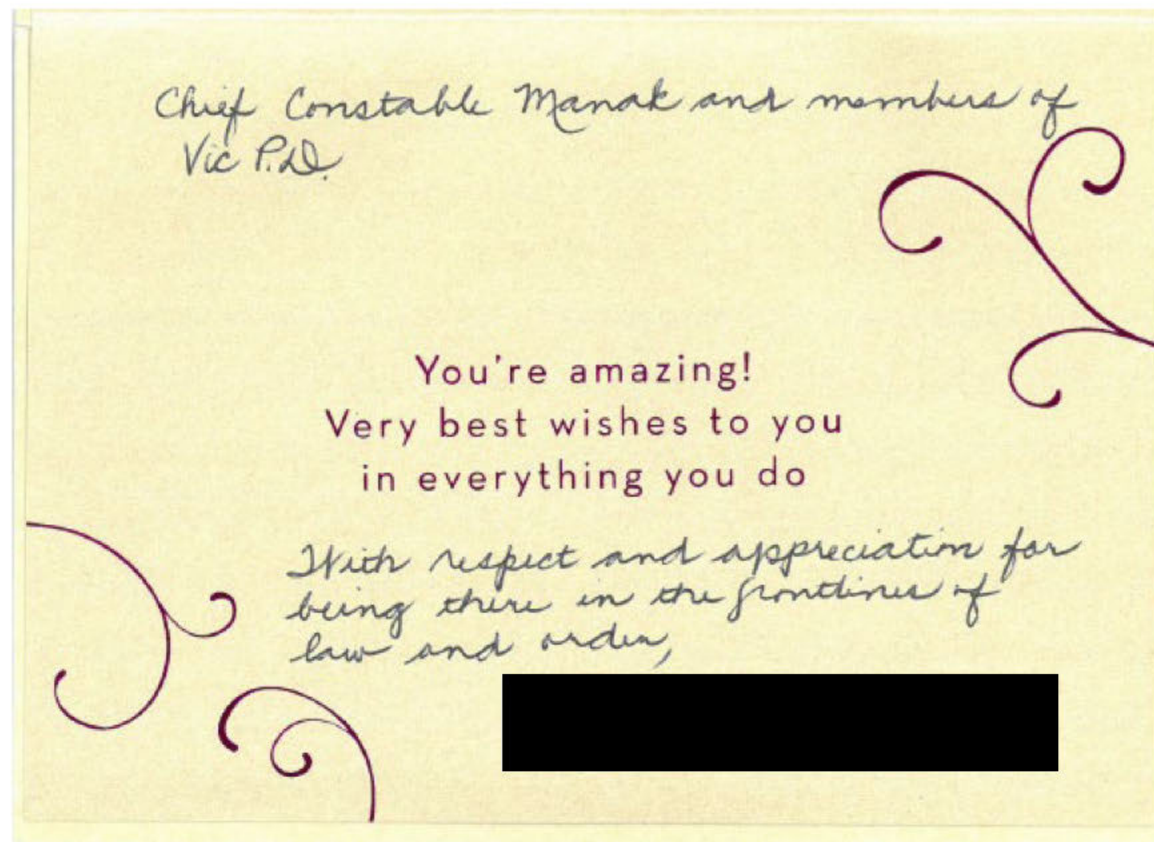 Chief Constable Manak and members of
Vic P.D.
You're amazing!
Very best wishes to you
in everything you do
With respect and appreciation for
being there in the frontlines of
law and order,